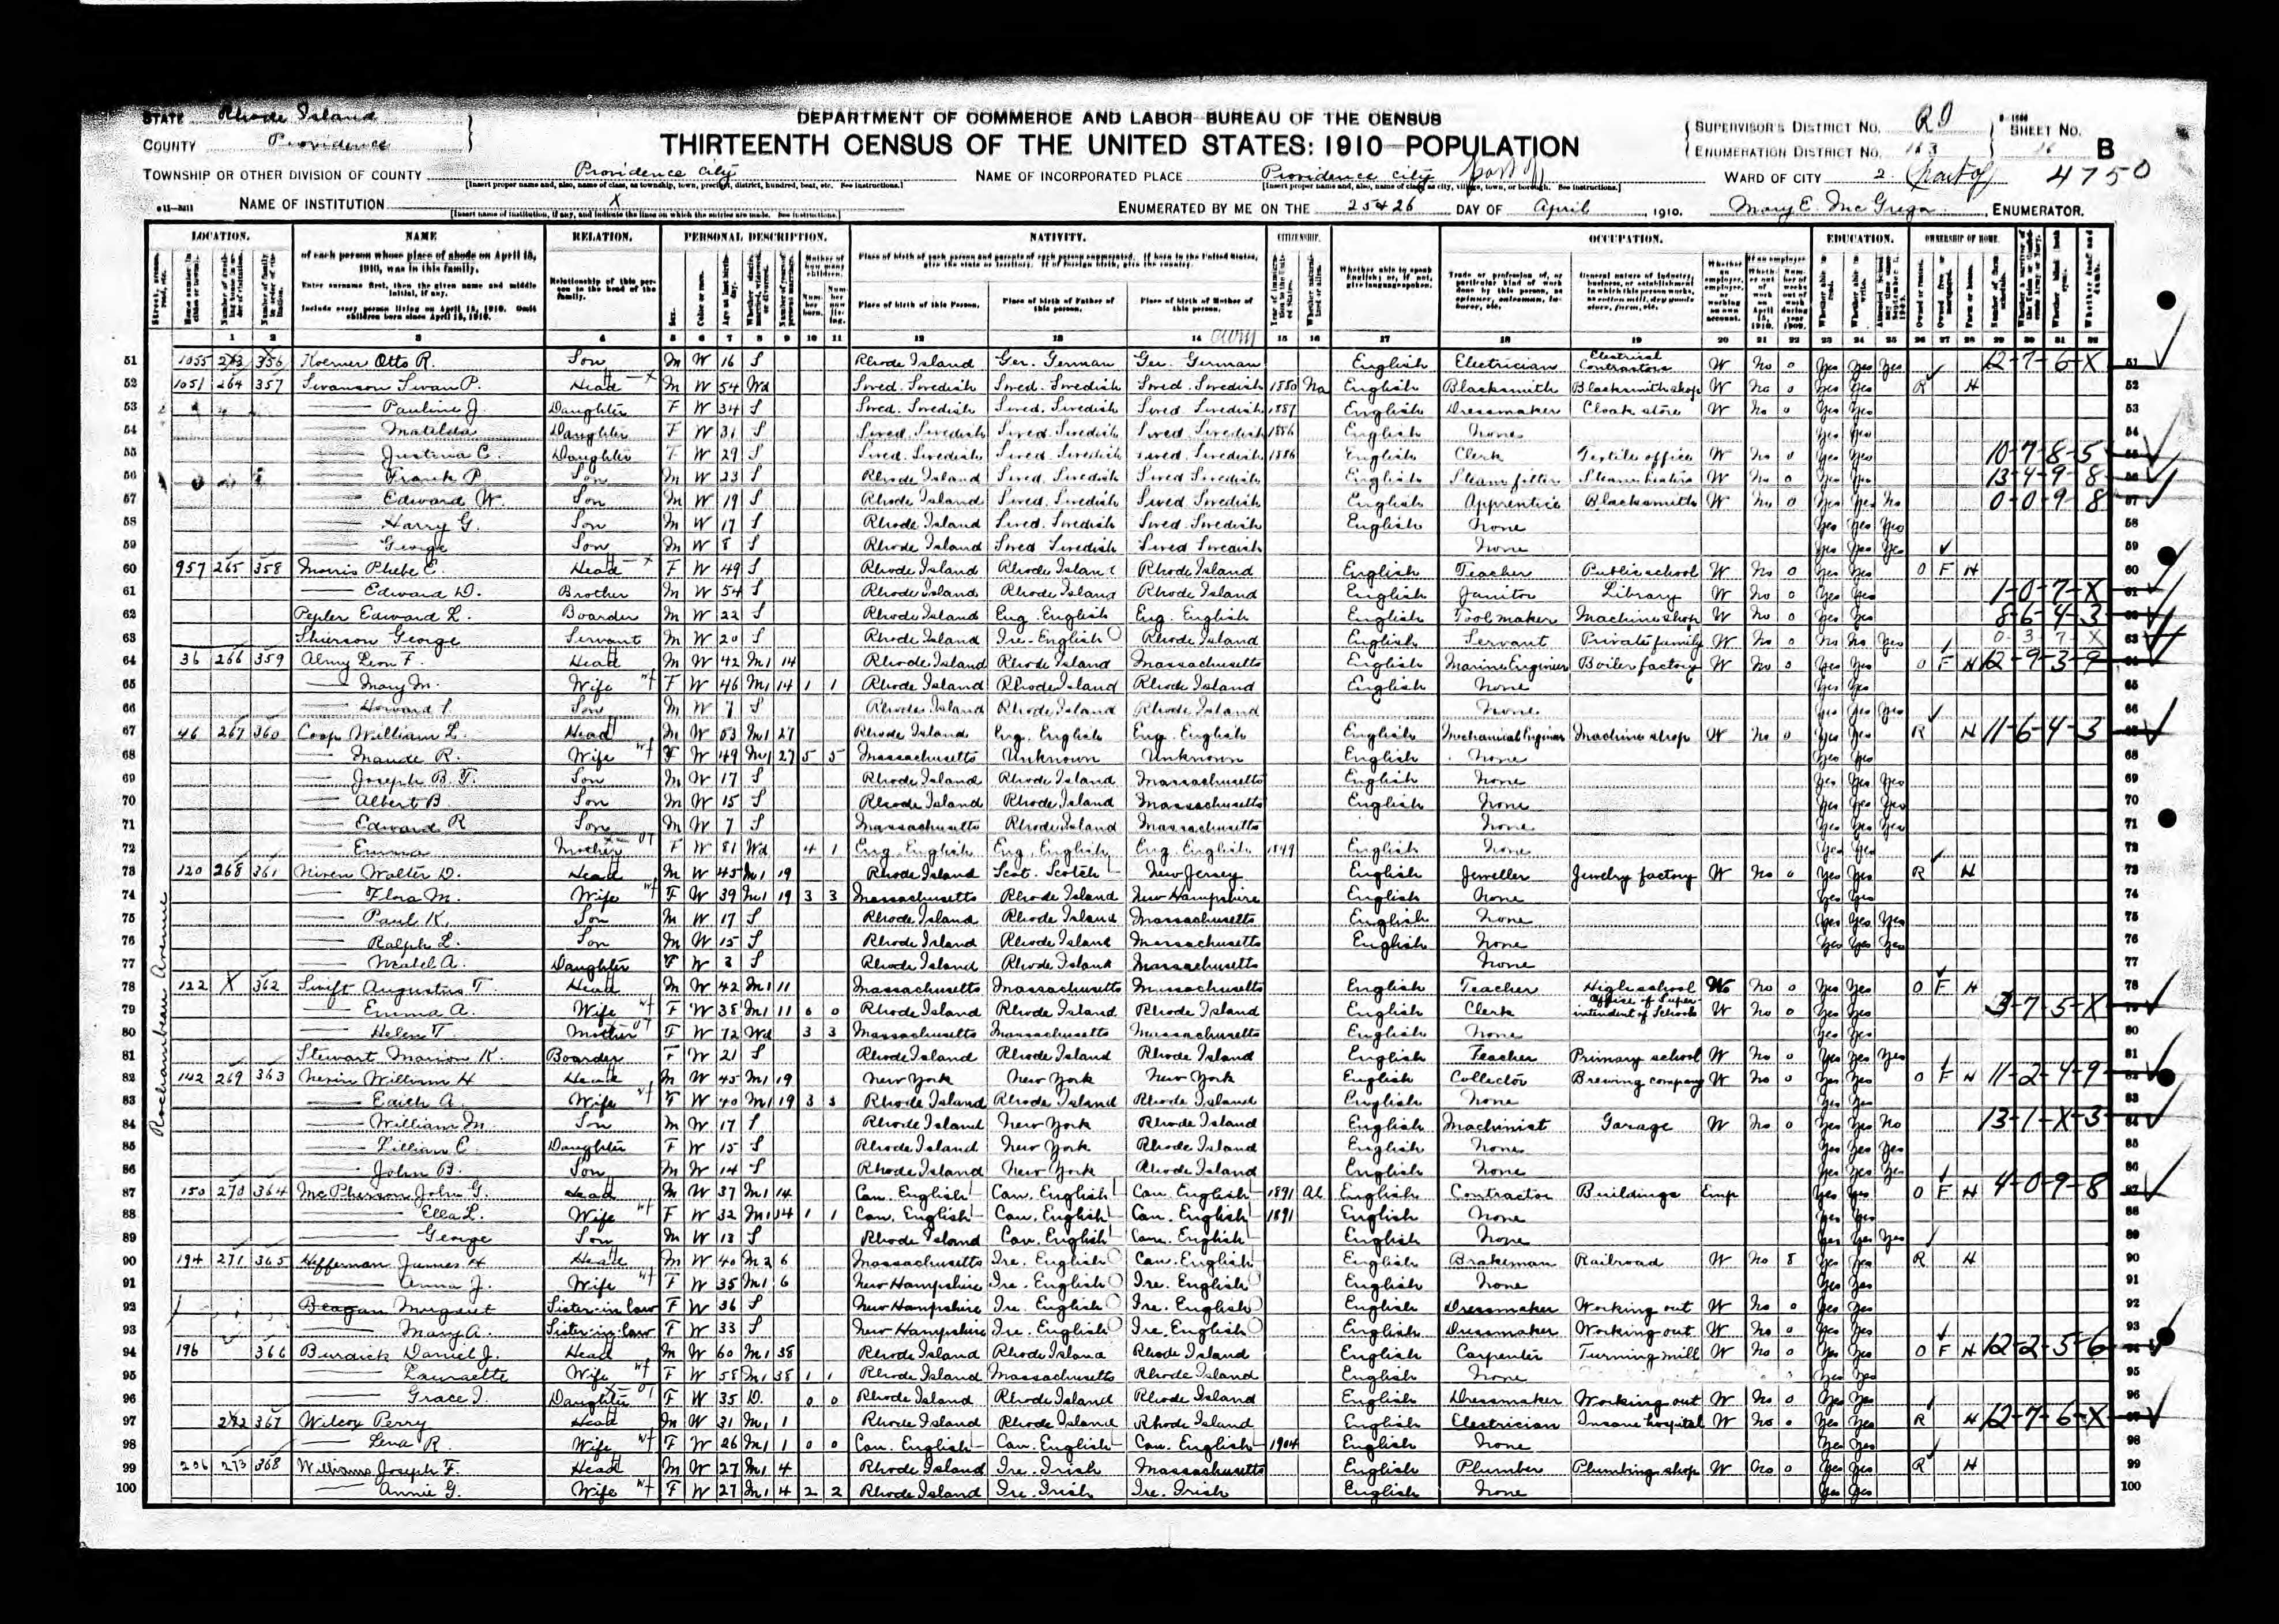 STATE Rhode Island
COUNTY Providence
DEPARTMENT OF COMMERCE AND LABOR—BUREAU OF THE CENSUS
THIRTEENTH CENSUS OF THE UNITED STATES: 1910—POPULATION
SUPERVISOR'S DISTRICT No. RI
ENUMERATION DISTRICT No. 163
SHEET No. 16 B
TOWNSHIP OR OTHER DIVISION OF COUNTY Providence City
NAME OF INCORPORATED PLACE Providence City part of
WARD OF CITY 2 (part of) 4750
NAME OF INSTITUTION X
ENUMERATED BY ME ON THE 25+26 DAY OF April, 1910. Mary E. McGregor, ENUMERATOR.
LOCATION. NAME RELATION. PERSONAL DESCRIPTION. NATIVITY. CITIZENSHIP. OCCUPATION. EDUCATION. OWNERSHIP OF HOME.
of each person whose place of abode on April 15, 1910, was in this family.
Enter surname first, then the given name and middle initial, if any.
Include every person living on April 15, 1910. Omit children born since April 15, 1910.
Relationship of this person to the head of the family.
Place of birth of this Person. Place of birth of Father of this person. Place of birth of Mother of this person.
Rochambeau Avenue
51 1055 263 356 Koerner Otto R. Son M W 16 S Rhode Island Ger. German Ger. German English Electrician Electrical Contractors W No 0 Yes Yes Yes 12-7-6-X 51
52 1051 264 357 Swanson Swan P. Head M W 54 Wd Swed. Swedish Swed. Swedish Swed. Swedish 1880 Na English Blacksmith Blacksmith shop W No 0 Yes Yes R H 52
53 Pauline J. Daughter F W 34 S Swed. Swedish Swed. Swedish Swed. Swedish 1887 English Dressmaker Cloak store W No 0 Yes Yes 53
54 Matilda Daughter F W 31 S Swed. Swedish Swed. Swedish Swed. Swedish 1886 English None Yes Yes 54
55 Justina C. Daughter F W 29 S Swed. Swedish Swed. Swedish Swed. Swedish 1886 English Clerk Textile office W No 0 Yes Yes 10-7-8-5 55
56 Frank P. Son M W 23 S Rhode Island Swed. Swedish Swed. Swedish English Steam fitter Steam heaters W No 0 Yes Yes 13-4-9-8 56
57 Edward W. Son M W 19 S Rhode Island Swed. Swedish Swed. Swedish English Apprentice Blacksmiths W No 0 Yes Yes No 0-0-9-8 57
58 Harry G. Son M W 17 S Rhode Island Swed. Swedish Swed. Swedish English None Yes Yes Yes 58
59 George Son M W 8 S Rhode Island Swed. Swedish Swed. Swedish None Yes Yes Yes 59
60 957 265 358 Morris Phebe E. Head F W 49 S Rhode Island Rhode Island Rhode Island English Teacher Public school W No 0 Yes Yes O F H 60
61 Edward D. Brother M W 54 S Rhode Island Rhode Island Rhode Island English Janitor Library W No 0 Yes Yes 1-0-7-X 61
62 Pepler Edward L. Boarder M W 22 S Rhode Island Eng. English Eng. English English Tool maker Machine shop W No 0 Yes Yes 8-6-4-3 62
63 George Servant M W 20 S Rhode Island Ire. English Rhode Island English Servant Private family W No 0 No No Yes 0-3-7-X 63
64 36 266 359 Almy Leon F. Head M W 42 M1 14 Rhode Island Rhode Island Massachusetts English Marine Engineer Boiler factory W No 0 Yes Yes O F H 12-9-3-9 64
65 Mary M. Wife F W 46 M1 14 1 1 Rhode Island Rhode Island Rhode Island English None Yes Yes 65
66 Howard Son M W 7 S Rhode Island Rhode Island Rhode Island None Yes Yes Yes 66
67 46 267 360 Coop William L. Head M W 53 M1 27 Rhode Island Eng. English Eng. English English Mechanical Engineer Machine shop W No 0 Yes Yes R H 11-6-4-3 67
68 Maude R. Wife F W 49 M1 27 5 5 Massachusetts Unknown Unknown English None Yes Yes 68
69 Joseph B. T. Son M W 17 S Rhode Island Rhode Island Massachusetts English None Yes Yes Yes 69
70 Albert B. Son M W 15 S Rhode Island Rhode Island Massachusetts English None Yes Yes Yes 70
71 Edward R Son M W 7 S Massachusetts Rhode Island Massachusetts None Yes Yes Yes 71
72 Emma Mother F W 81 Wd 4 1 Eng. English Eng. English Eng. English 1849 English None Yes Yes 72
73 120 268 361 Niven Walter D. Head M W 45 M1 19 Rhode Island Scot. Scotch New Jersey English Jeweller Jewelry factory W No 0 Yes Yes R H 73
74 Flora M. Wife F W 39 M1 19 3 3 Massachusetts Rhode Island New Hampshire English None Yes Yes 74
75 Paul K. Son M W 17 S Rhode Island Rhode Island Massachusetts English None Yes Yes Yes 75
76 Ralph L. Son M W 15 S Rhode Island Rhode Island Massachusetts English None Yes Yes Yes 76
77 Mabel A. Daughter F W 3 S Rhode Island Rhode Island Massachusetts None 77
78 122 X 362 Swift Augustus T. Head M W 42 M1 11 Massachusetts Massachusetts Massachusetts English Teacher High school W No 0 Yes Yes O F H 78
79 Emma A. Wife F W 38 M1 11 0 0 Rhode Island Rhode Island Rhode Island English Clerk Office of Superintendent of Schools W No 0 Yes Yes 3-7-5-X 79
80 Helen T. Mother F W 72 Wd 3 3 Massachusetts Massachusetts Massachusetts English None Yes Yes 80
81 Stewart Marion K. Boarder F W 21 S Rhode Island Rhode Island Rhode Island English Teacher Primary school W No 0 Yes Yes Yes 81
82 142 269 363 Nevin William H Head M W 45 M1 19 New York New York New York English Collector Brewing company W No 0 Yes Yes O F H 11-2-4-9 82
83 Edith A. Wife F W 40 M1 19 3 3 Rhode Island Rhode Island Rhode Island English None Yes Yes 83
84 William M. Son M W 17 S Rhode Island New York Rhode Island English Machinist Garage W No 0 Yes Yes No 13-1-X-3 84
85 Lillian E. Daughter F W 15 S Rhode Island New York Rhode Island English None Yes Yes Yes 85
86 John B. Son M W 14 S Rhode Island New York Rhode Island English None Yes Yes Yes 86
87 150 270 364 McPherson John G. Head M W 37 M1 14 Can. English Can. English Can. English 1891 Al English Contractor Buildings Emp Yes Yes O F H 4-0-9-8 87
88 Ella L. Wife F W 32 M1 14 1 1 Can. English Can. English Can. English 1891 English None Yes Yes 88
89 George Son M W 13 S Rhode Island Can. English Can. English English None Yes Yes Yes 89
90 194 271 365 Heffernan James H Head M W 40 M2 6 Massachusetts Ire. English Can. English English Brakeman Railroad W No 8 Yes Yes R H 90
91 Anna J. Wife F W 35 M1 6 New Hampshire Ire. English Ire. English English None Yes Yes 91
92 Beagan Margaret Sister-in-law F W 36 S New Hampshire Ire. English Ire. English English Dressmaker Working out W No 0 Yes Yes 92
93 Mary A. Sister-in-law F W 33 S New Hampshire Ire. English Ire. English English Dressmaker Working out W No 0 Yes Yes 93
94 196 366 Burdick Daniel J. Head M W 60 M1 38 Rhode Island Rhode Island Rhode Island English Carpenter Turning mill W No 0 Yes Yes O F H 12-2-5-6 94
95 Laurette Wife F W 58 M1 38 1 1 Rhode Island Massachusetts Rhode Island English None Yes Yes 95
96 Grace I. Daughter F W 35 D. 0 0 Rhode Island Rhode Island Rhode Island English Dressmaker Working out W No 0 Yes Yes 96
97 272 367 Wilcox Perry Head M W 31 M1 1 Rhode Island Rhode Island Rhode Island English Electrician Insane hospital W No 0 Yes Yes R H 12-7-6-X 97
98 Lena R. Wife F W 26 M1 1 0 0 Can. English Can. English Can. English 1904 English None Yes Yes 98
99 206 273 368 Williams Joseph F. Head M W 27 M1 4 Rhode Island Ire. Irish Massachusetts English Plumber Plumbing shop W No 0 Yes Yes R H 99
100 Annie G. Wife F W 27 M1 4 2 2 Rhode Island Ire. Irish Ire. Irish English None Yes Yes 100